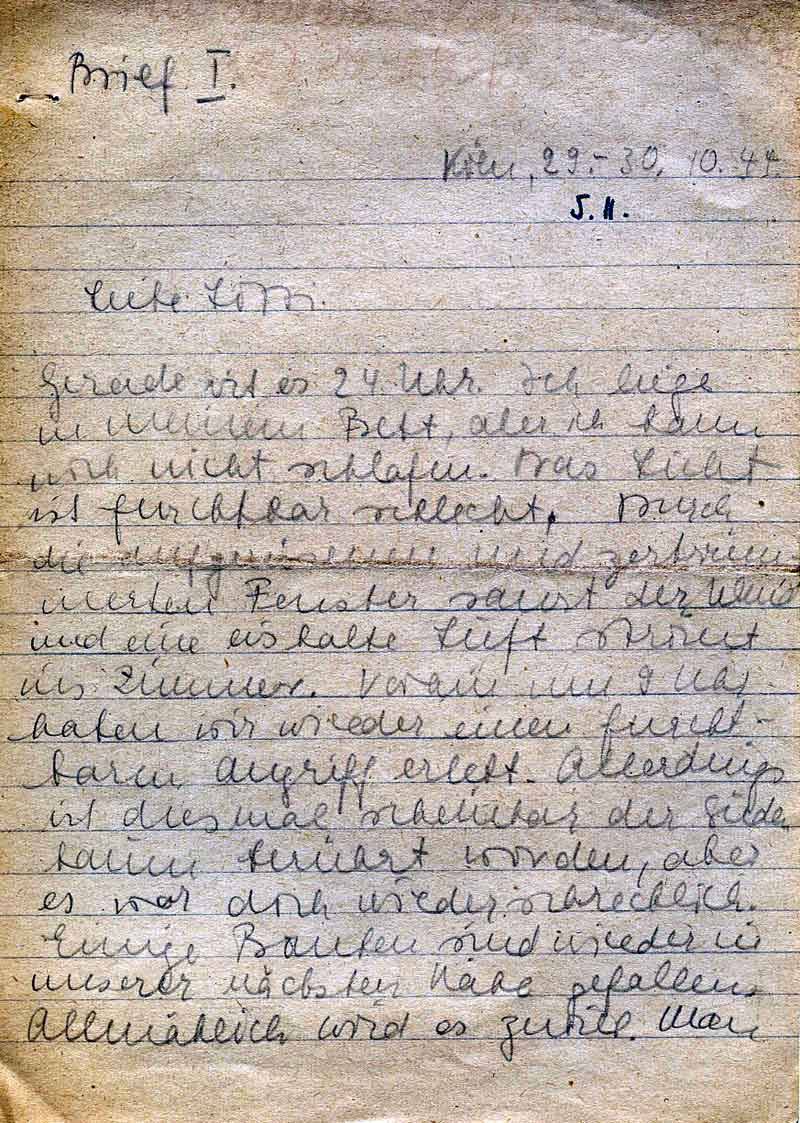 Brief I.
Köln, 29.-30. 10. 44.
5. 11.
Liebe
Gerade ist es 24 Uhr. Ich liege
in meinem Bett, aber ich kann
noch nicht schlafen. Das Licht
ist furchtbar schlecht. Durch
die aufgerissenen und zertrüm-
merten Fenster saust der Wind
und eine eiskalte Luft strömt
ins Zimmer. um 9 Uhr
haben wir wieder einen furcht-
baren Angriff erlebt. Allerdings
ist diesmal scheinbar der
kaum berührt worden, aber
es war doch wieder schrecklich.
Einige Bomben sind wieder in
unserer nächsten Nähe gefallen.
Allmählich wird es zuviel. Man